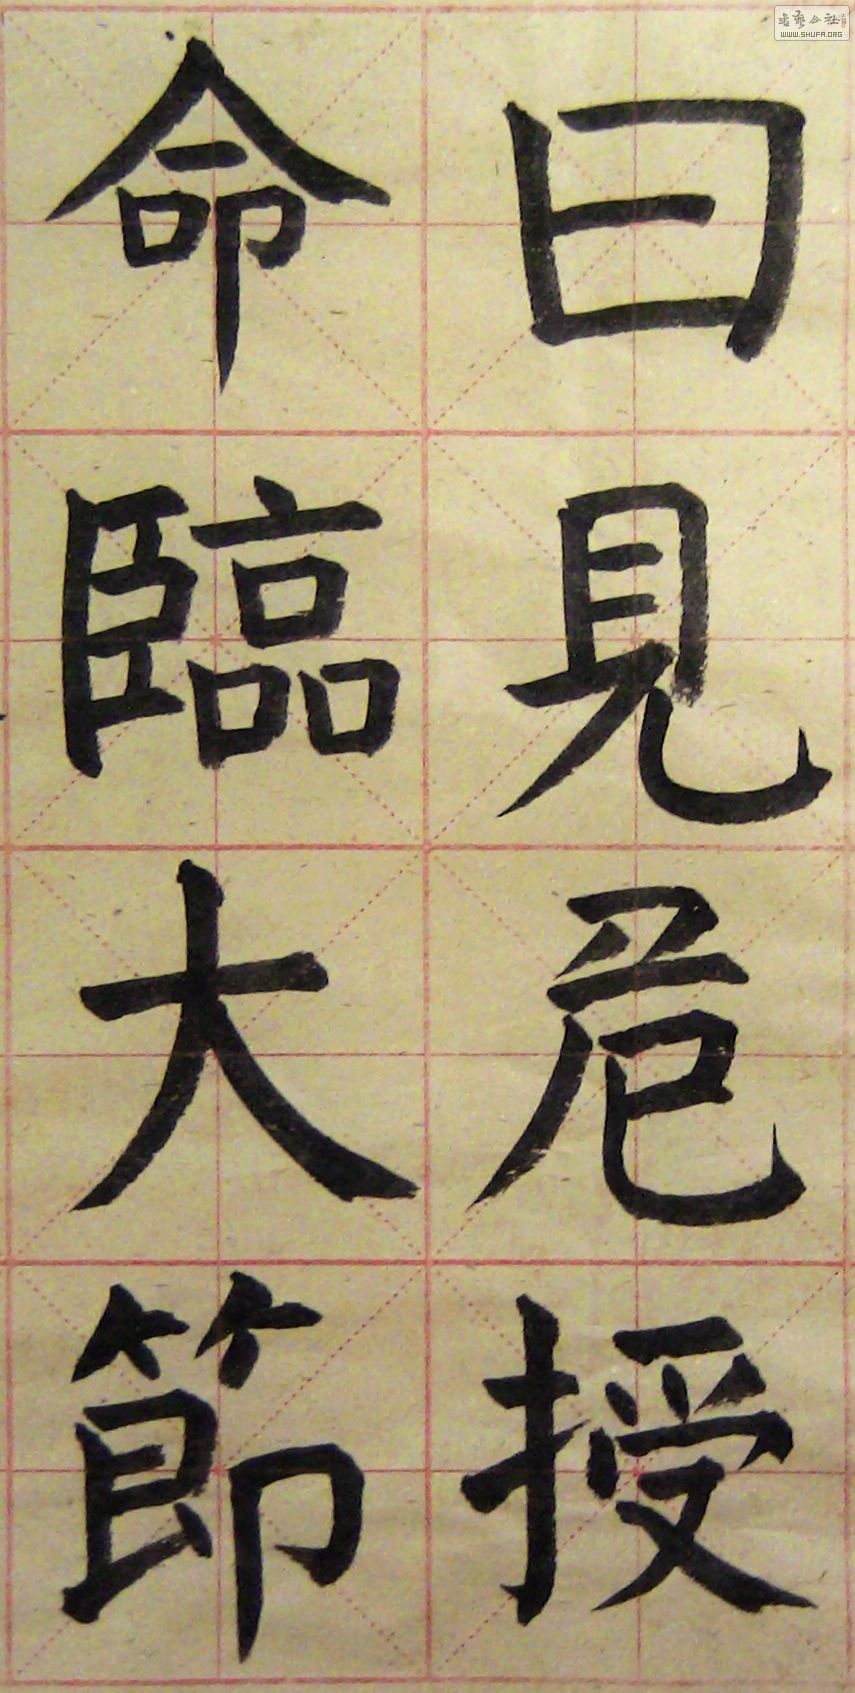 曰見危授
命臨大節
書藝公社
WWW.SHUFA.ORG